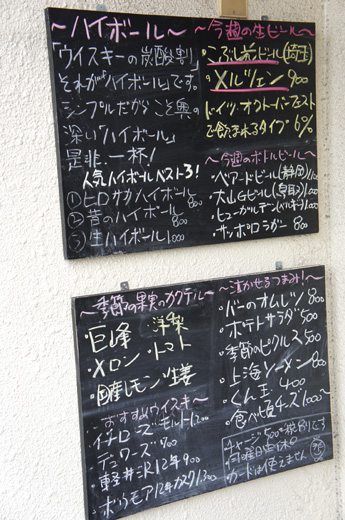 ～ハイボール～
「ウイスキーの炭酸割」
それが「ハイボール」です。
シンプルだからこそ奥の
深い「ハイボール」
是非一杯！
人気ハイボールベスト3！
① ヒロサカハイボール 800
② 昔のハイボール 800
③ 生ハイボール 1000
～今週の生ビール～
・こぶし花ビール(埼玉)
・メルツェン 900
ドイツ、オクトーバーフェスト
で飲まれるタイプ 6%
～今週のボトルビール～
・ベアードビール(静岡)
・大山Gビール(鳥取)
・ヒューガルデン(ベルギー)
・サッポロラガー 800
～季節の果実のカクテル～
・巨峰 ・洋梨
・メロン ・トマト
・国産レモン ・生姜
～おすすめウイスキー～
・イチローズモルト 1200
・デュワーズ 700
・軽井沢12年 900
・ボウモア12年カスク 1300
～泣かせるつまみ！～
・バーのオムレツ 800
・ポテトサラダ 500
・季節のピクルス 500
・上海ソーメン 800
・くん玉 400
・食べ頃チーズ 1000
チャージ500 税別です
日曜日定休
カードは使えません